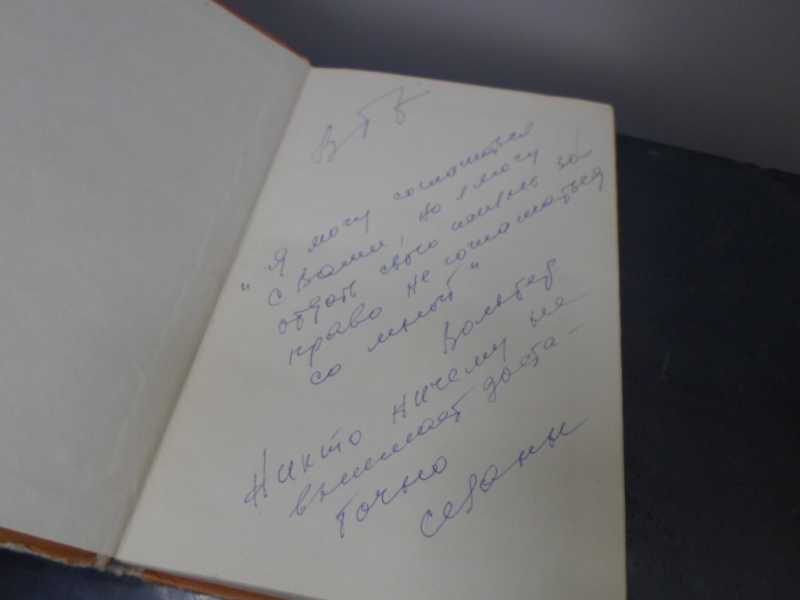 ВТБ
"Я могу соглашаться
с Вами, но я могу
отдать свою жизнь за
право не соглашаться
со мной"
Вольтер
Никто ничему не
внимает доста-
точно
Сезанн